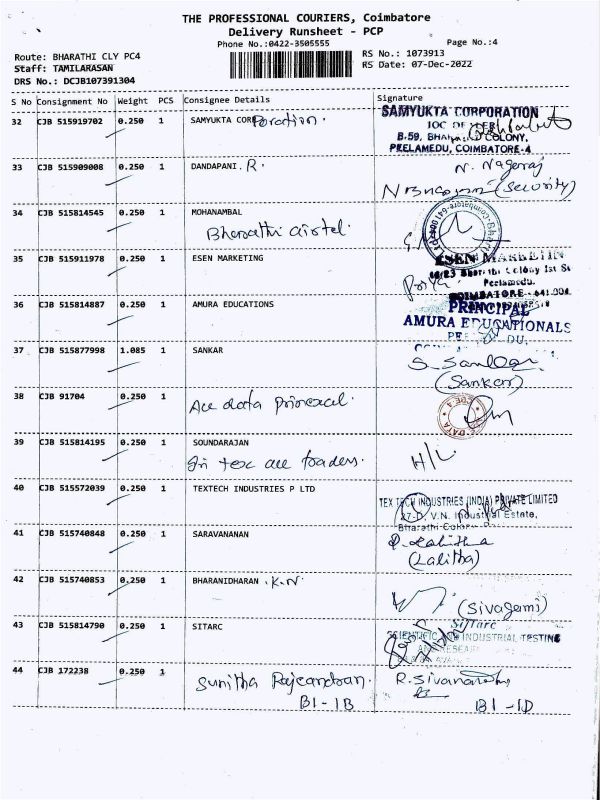 THE PROFESSIONAL COURIERS, Coimbatore
Delivery Runsheet - PCP
Phone No.:0422-3505555
Page No.:4
Route: BHARATHI CLY PC4
RS No.: 1073913
Staff: TAMILARASAN
RS Date: 07-Dec-2022
DRS No.: DCJB107391304
S No Consignment No Weight PCS Consignee Details Signature
32 CJB 515919702 0.250 1 SAMYUKTA CORPoration. SAMYUKTA CORPORATION
B-59, COLONY,
PEELAMEDU, COIMBATORE-4
33 CJB 515909008 0.250 1 DANDAPANI. R. N. Nagaraj
(Security)
34 CJB 515814545 0.250 1 MOHANAMBAL
Bharathi airtel
35 CJB 515911978 0.250 1 ESEN MARKETING ESEN MARKETIN
Bharathi Colony 1st St
Peelamedu,
COIMBATORE - 641 004
36 CJB 515814887 0.250 1 AMURA EDUCATIONS PRINCIPAL
AMURA EDUCATIONALS
37 CJB 515877998 1.085 1 SANKAR S. Sankar
(Sankar)
38 CJB 91704 0.250 1 DATA
39 CJB 515814195 0.250 1 SOUNDARAJAN H/L
40 CJB 515572039 0.250 1 TEXTECH INDUSTRIES P LTD TEX TECH INDUSTRIES (INDIA) PRIVATE LIMITED
27-D, V.N. Industrial Estate,
Bharathi Colony
41 CJB 515740848 0.250 1 SARAVANANAN Lalitha
(Lalitha)
42 CJB 515740853 0.250 1 BHARANIDHARAN .K.N (Sivagami)
43 CJB 515814790 0.250 1 SITARC SITarc
SCIENTIFIC AND INDUSTRIAL TESTING
AND RESEAR
44 CJB 172238 0.250 1 Sunitha Rajcandran. R. Sivanantha
B1-1B B1-1D